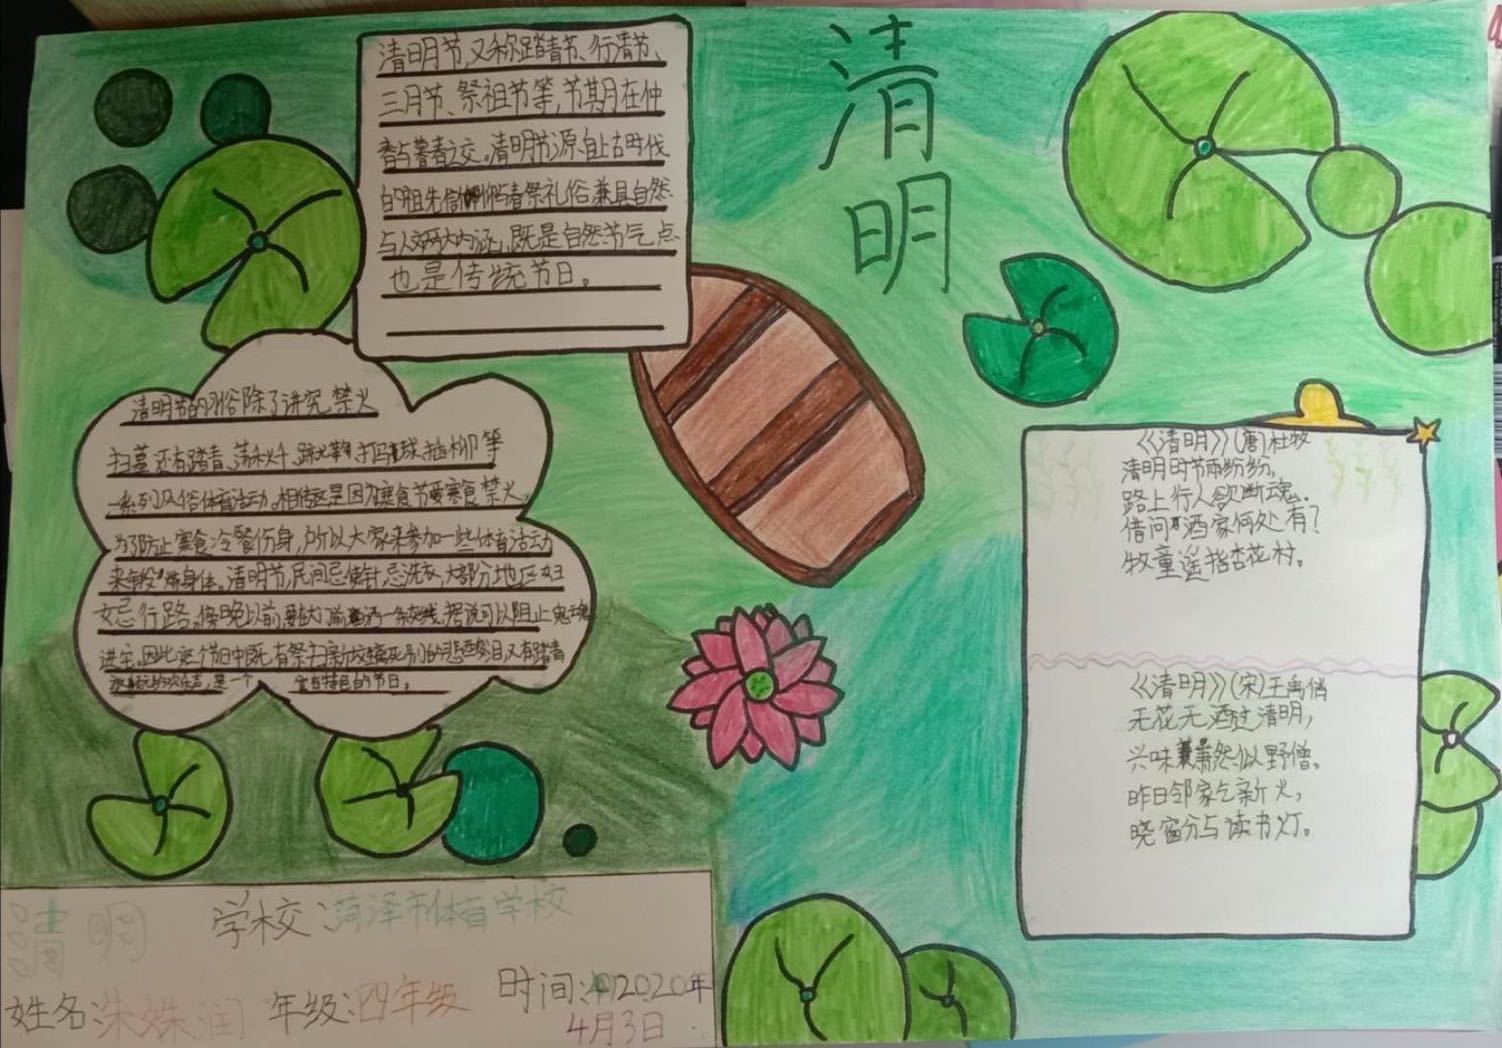 清明
清明节,又称踏青节、行清节、
三月节、祭祖节等,节期在仲
春与暮春之交。清明节源自上古时代
的祖先信仰与春祭礼俗兼具自然
与人文两大内涵,既是自然节气点
也是传统节日。
清明节的习俗除了讲究禁火
扫墓还有踏青、荡秋千、蹴鞠、打马球、插柳等
一系列风俗体育活动。相传这是因为寒食节要寒食禁火,
为了防止寒食冷餐伤身,所以大家来参加一些体育活动
来锻炼身体。清明节,民间忌使针,忌洗衣,大部分地区妇
女忌行路。傍晚以前,要在大门前洒一条灰线,据说可以阻止鬼魂
进宅。因此这个节日中既有祭扫新坟生离死别的悲酸泪,又有踏青
游玩的欢乐声,是一个 富有特色的节日。
《清明》(唐)杜牧
清明时节雨纷纷,
路上行人欲断魂.
借问酒家何处有?
牧童遥指杏花村。
《清明》(宋)王禹偁
无花无酒过清明,
兴味萧然似野僧。
昨日邻家乞新火,
晓窗分与读书灯。
清明
学校:菏泽市体育学校
姓名:朱姝润 年级:四年级 时间:2020年
4月3日